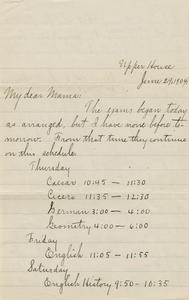 Upper House
June 29, 1904
My dear Mama:
The exams began today
as arranged, but I have none before to-
morrow. From that time they continue
on this schedule.
Thursday
Caesar 10:45 — 11:30
Cicero 11:35 — 12:30
German 3:00 — 4:00
Geometry 4:00 — 6:00
Friday
English 11:05 — 11:55
Saturday
English History 9:50 - 10:35